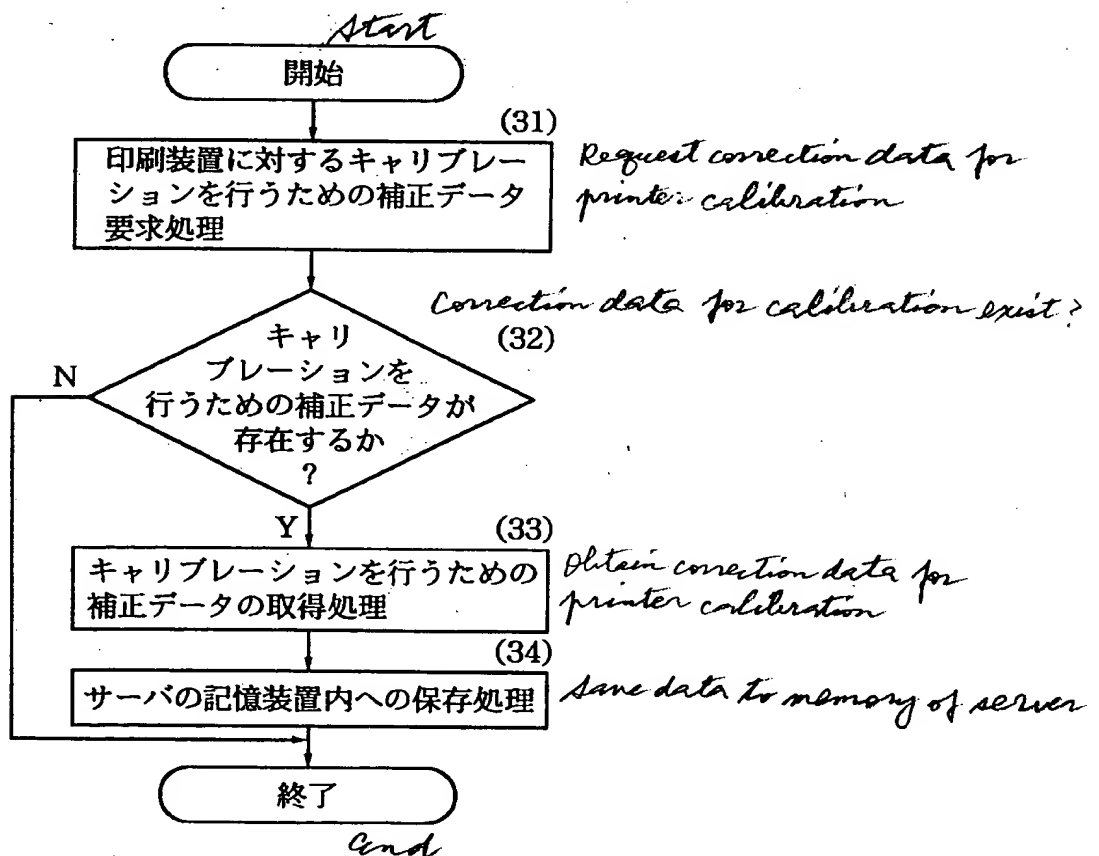 Start
開始
(31)
印刷装置に対するキャリブレー
ションを行うための補正データ
要求処理
Request correction data for
printer calibration
Correction data for calibration exist?
(32)
キャリ
ブレーションを
行うための補正データが
存在するか
?
N
Y
(33)
キャリブレーションを行うための
補正データの取得処理
Obtain correction data for
printer calibration
(34)
サーバの記憶装置内への保存処理
Save data to memory of server
終了
End